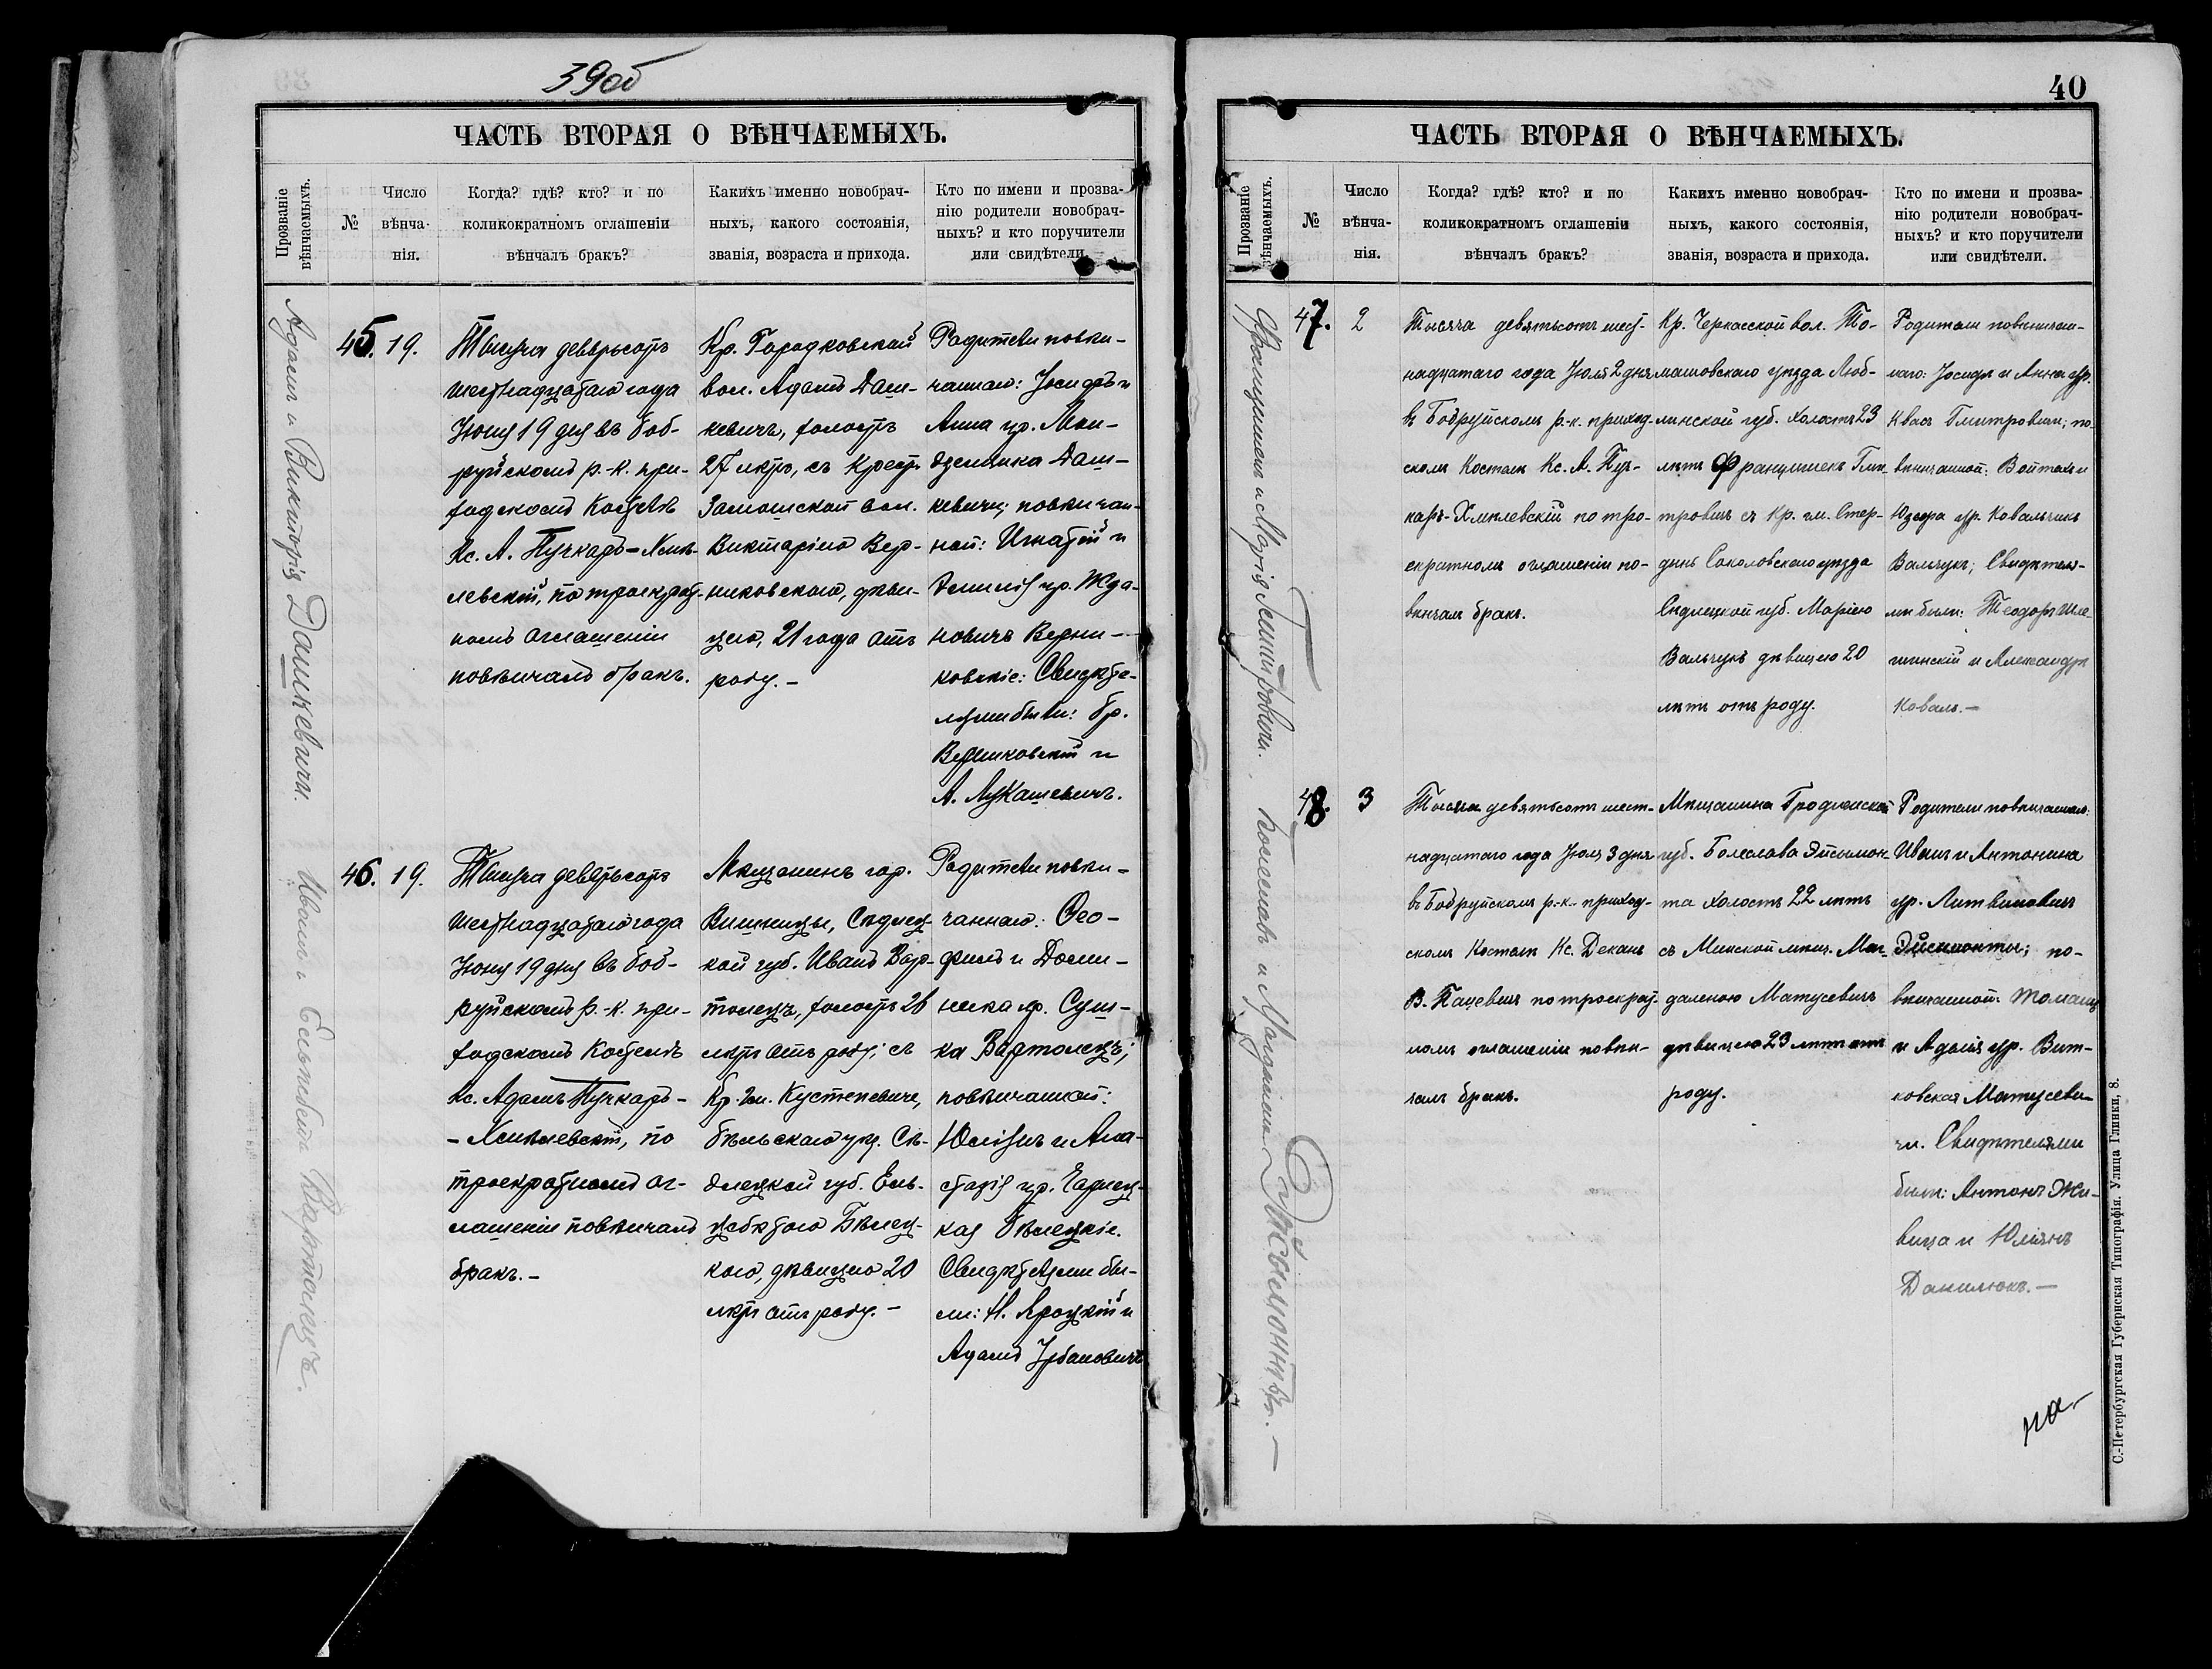 39об
ЧАСТЬ ВТОРАЯ О ВѢНЧАЕМЫХЪ.
Прозваніе
вѣнчаемыхъ.
№
Число
вѣнча-
нія.
Когда? гдѣ? кто? и по
коликократномъ оглашеніи
вѣнчалъ бракъ?
Какихъ именно новобрач-
ныхъ, какого состоянія,
званія, возраста и прихода.
Кто по имени и прозва-
нію родители новобрач-
ныхъ? и кто поручители
или свидѣтели.
Адамъ и Викторія Дашкевичи.
45. 19.
Тысяча девятьсотъ
шестнадцатаго года
Іюня 19 дня въ Боб-
руйскомъ р.-к. при-
ходскомъ Костелѣ
Кс. А. Пучкаръ-Хмѣ-
левскій, по троекрат-
номъ оглашеніи
повѣнчалъ бракъ.
Кр. Городковской
вол. Адамъ Даш-
кевичъ, холостъ
27 лѣтъ, съ Крест.
Замошской вол.
Викторіею Вер-
никовскою, дѣви-
цею, 21 года отъ
роду.-
Родители повѣн-
чаннаго: Іосифъ и
Анна ур.
Даш-
кевичи; повѣнчан-
ной: Игнатій и
Эмилія ур. Жда-
новичъ Верни-
ковскіе: Свидѣте-
лями были: Бр.
Верниковскій и
А. Лукашевичъ.
Иванъ и Бартолецъ.
46. 19.
Тысяча девятьсотъ
шестнадцатаго года
Іюня 19 дня въ Боб-
руйскомъ р.-к. при-
ходскомъ Костелѣ
Кс. Адамъ Пучкаръ-
-Хмѣлевскій, по
троекратномъ ог-
лашеніи повѣнчалъ
бракъ.-
Мѣщанинъ гор.
Вишницы, Сѣдлец-
кой губ. Иванъ Бар-
толецъ, холостъ 26
лѣтъ отъ роду; съ
Кр. гм. Кустеневиче,
бѣльскаго уѣз. Сѣ-
длецкой губ. Ель-
цбѣтою Бѣлец-
кою, дѣвицею 20
лѣтъ отъ роду.-
Родители повѣн-
чаннаго: Ѳео-
филъ и Доми-
ника ур. Суш-
ка Бартолецъ;
повѣнчанной:
Юліянъ и Ана-
стазія ур.
кая Бѣлецкіе.
Свидѣтелями бы-
ли: Н. Яроцкій и
Адамъ Урбановичъ
40
ЧАСТЬ ВТОРАЯ О ВѢНЧАЕМЫХЪ.
Прозваніе
вѣнчаемыхъ.
№
Число
вѣнча-
нія.
Когда? гдѣ? кто? и по
коликократномъ оглашеніи
вѣнчалъ бракъ?
Какихъ именно новобрач-
ныхъ, какого состоянія,
званія, возраста и прихода.
Кто по имени и прозва-
нію родители новобрач-
ныхъ? и кто поручители
или свидѣтели.
Францишекъ и Марія
47. 2
Тысяча девятьсотъ шест-
надцатаго года Іюля 2 дня
въ Бобруйскомъ р.-к. приход-
скомъ Костелѣ Кс. А. Пуч-
каръ-Хмѣлевскій по тро-
екратномъ оглашеніи по-
вѣнчалъ бракъ.
Кр. Черкасской вол. То-
машовскаго уѣзда Люб-
линской губ. холостъ 23
лѣтъ Францишекъ Гми-
тровичъ съ Кр. гм. Стер-
дынь Соколовскаго уѣзда
Сѣдлецкой губ. Маріею
Вальчукъ дѣвицею 20
лѣтъ отъ роду.
Родители повѣнчан-
наго: Іосифъ и Анна ур.
Квасъ Гмитровичи; по-
вѣнчанной: Войтехъ и
Юзефа ур. Ковальчикъ
Вальчукъ; Свидѣтеля-
ми были: Теодоръ
и Александръ
Коваль.-
Болеславъ и Магдалина Эйсымонтъ.-
48. 3
Тысяча девятьсотъ шест-
надцатаго года Іюля 3 дня
въ Бобруйскомъ р.-к. приход-
скомъ Костелѣ Кс. Деканъ
В. Пацевичъ по троекрат-
номъ оглашеніи повѣн-
чалъ бракъ.
Мѣщанина Гродненской
губ. Болеслава Эйсымон-
та холостъ 22 лѣтъ
съ Минской мѣщ. Маг-
даленою Матусевичъ
дѣвицею 23 лѣтъ отъ
роду.
Родители повѣнчаннаго:
Иванъ и Антонина
ур. Литвиновичъ
Эйсымонты; по-
вѣнчанной: Томашъ
и Адалія ур. Вит-
ковская Матусеви-
чи. Свидѣтелями
были: Антонъ Жи-
вица и Юліянъ
Данилюкъ.-
на-
С.-Петербургская Губернская Типографія. Улица Глинки, 8.